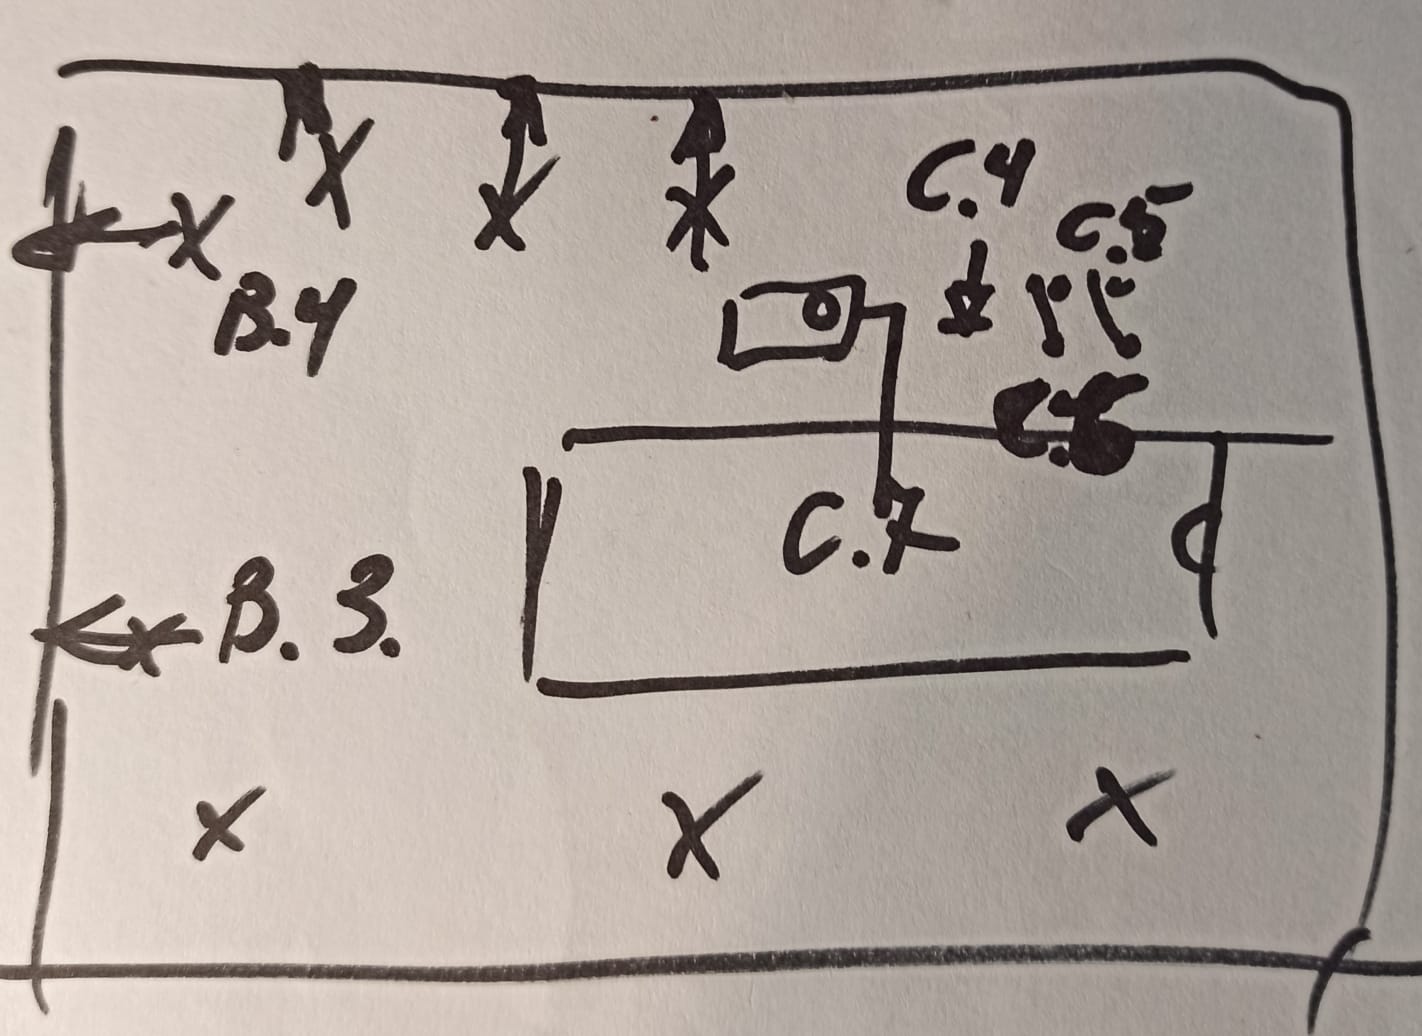 X
X
X
X
C.4
C.5
B.4
C.7
B. 3.
X
X
X
X